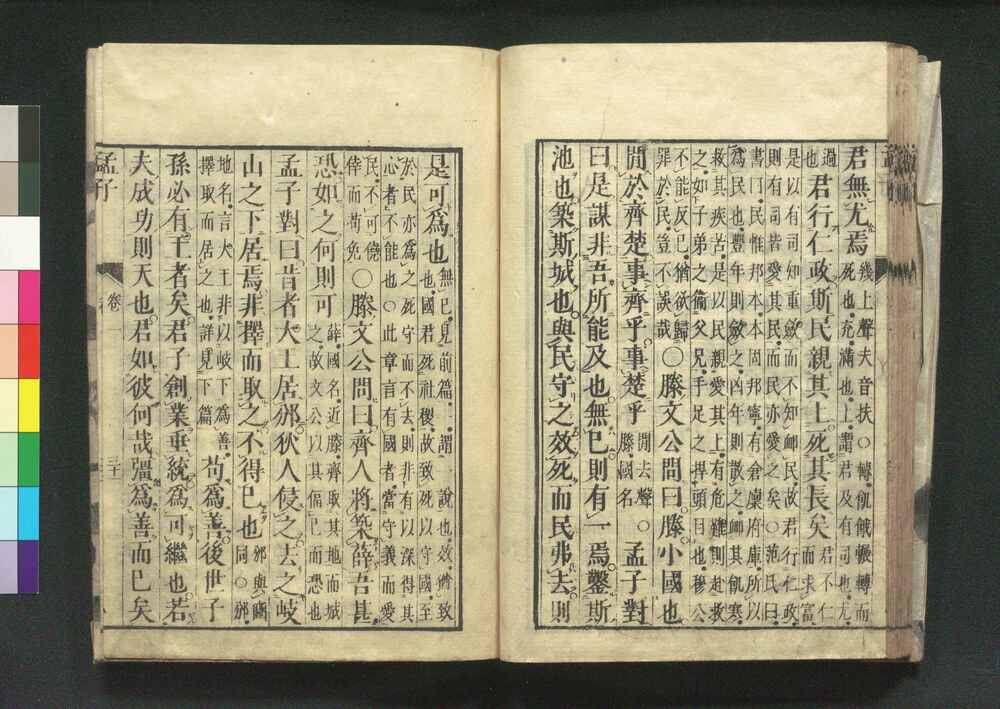 君無尤焉幾上聲夫音扶○轉飢餓輾轉而
死也充滿也上謂君及有司也尤
過
也君行仁政斯民親其上死其長矣君不仁
而求富
是以有司知重斂而不知卹民故君行仁政
則有司皆愛其民而民亦愛之矣○范氏曰
書曰民惟邦本本固邦寧有倉廩府庫所以
為民也豐年則斂之凶年則散之卹其飢寒
救其疾苦是以民親愛其上有危難則赴救
之如子弟之衞父兄手足之捍頭目也穆公
不能反己猶欲歸
罪於民豈不誤哉○滕文公問曰滕小國也
間於齊楚事齊乎事楚乎間去聲○
滕國名孟子對
曰是謀非吾所能及也無已則有一焉鑿斯
池也築斯城也與民守之效死而民弗去則
是可爲也無已見前篇一謂一說也效猶致
也國君死社稷故致死以守國至
於民亦爲之死守而不去則非有以深得其
心者不能也○此章言有國者當守義而愛
民不可僥
倖而苟免○滕文公問曰齊人將築薛吾甚
恐如之何則可薛國名近滕齊取其地而城
之故文公以其偪己而恐也
孟子對曰昔者大王居邠狄人侵之去之岐
山之下居焉非擇而取之不得已也邠與豳
同○邠
地名言大王非以岐下爲善
擇取而居之也詳見下篇苟爲善後世子
孫必有王者矣君子創業垂統爲可繼也若
夫成功則天也君如彼何哉彊爲善而已矣
孟子 卷一 三十